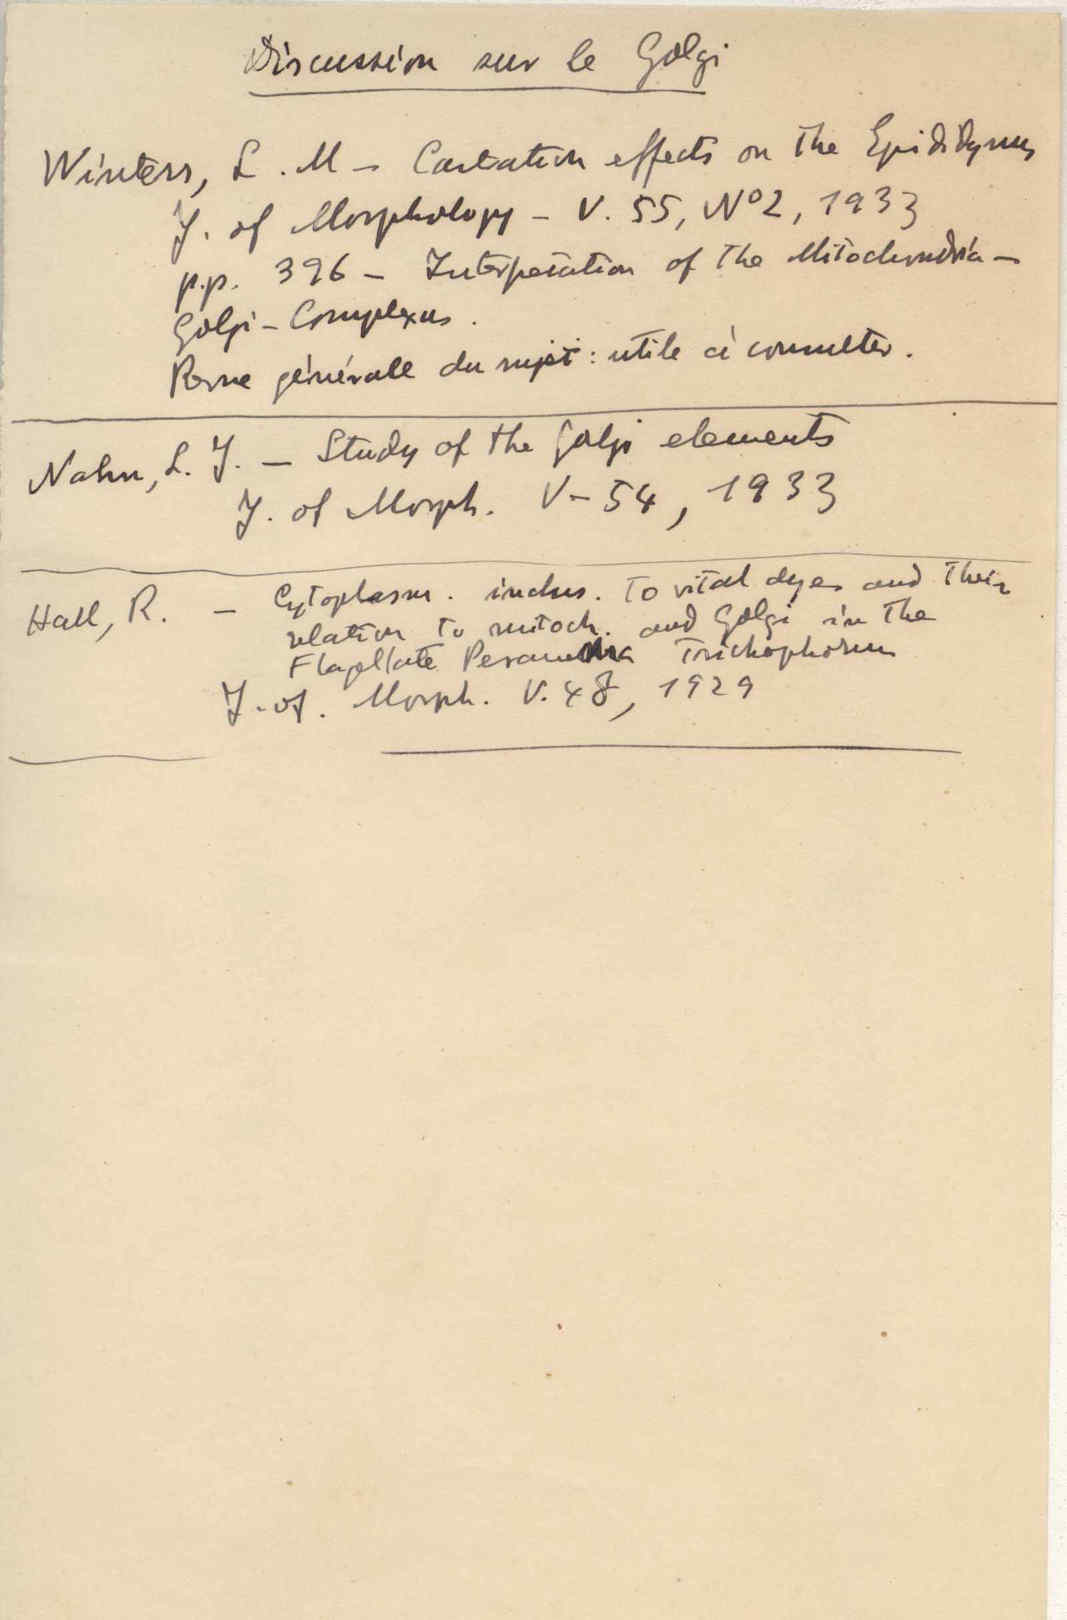 Discussion sur le Golgi
Winters, L. M – Castration effects on the Epididymus
J. of Morphology – V. 55, Nº2, 1933
p.p. 396 – Interpretation of the Mitochondria –
Golgi – Complexus.
Revue générale du sujet : utile à consulter.
Nahm, L. J. – Study of the Golgi elements
J. of Morph. V – 54, 1933
Hall, R. – Cytoplasm. inclus. to vital dyes and their
relation to mitoch. and Golgi in the
Flagellate Trichophorum
J. of. Morph. V. 48, 1929